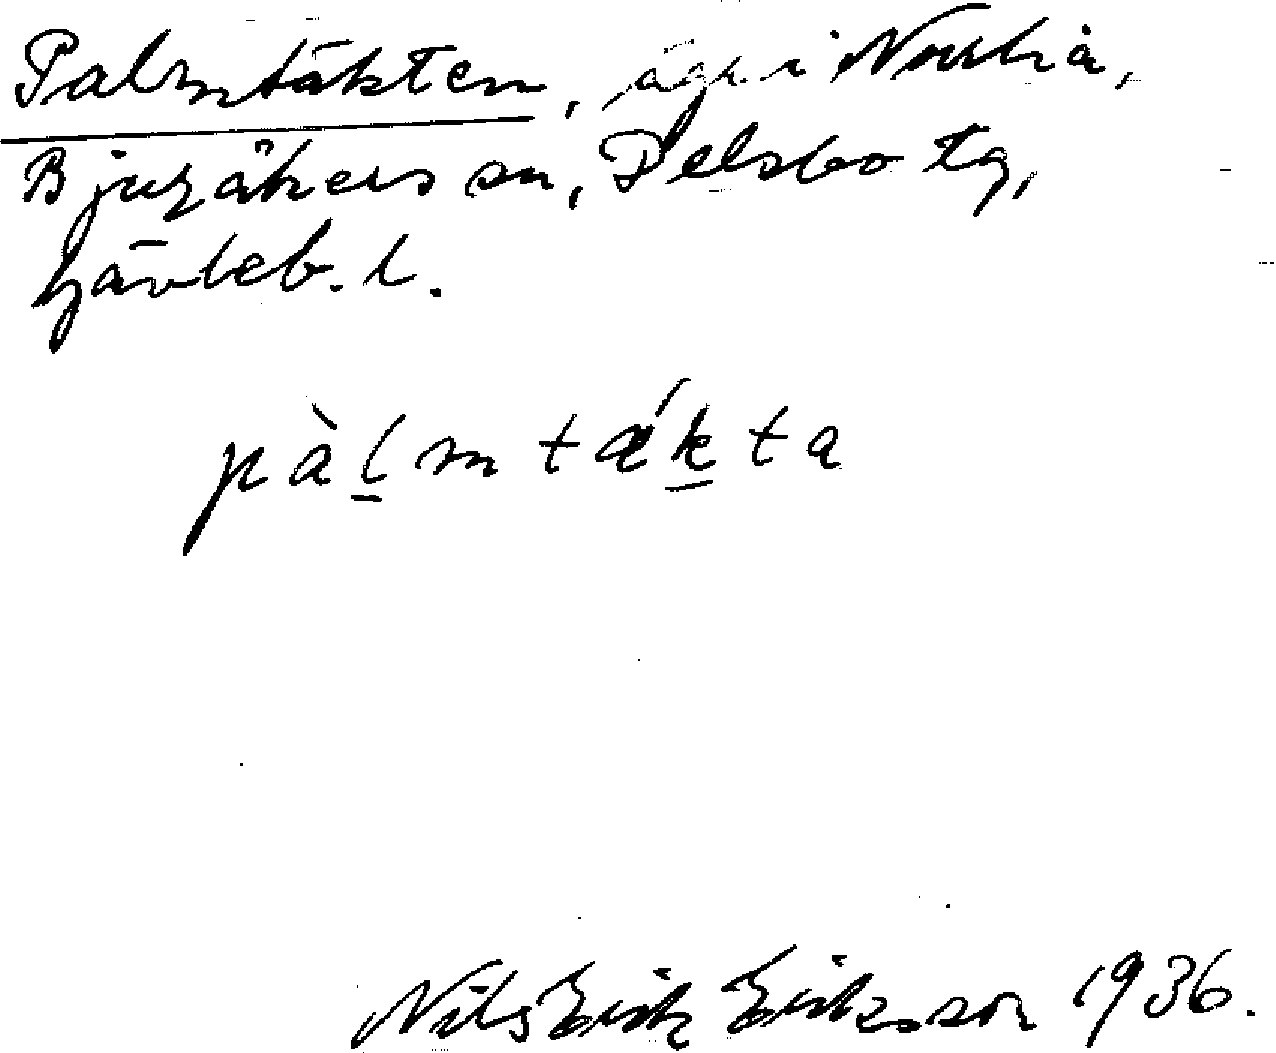 Palmtäkten, ägor i Norrhå,
Bjuråkers sn, Delsbo tg,
Gävleb. l.
pàlmtäkta
Nils Erik Eriksson 1936.